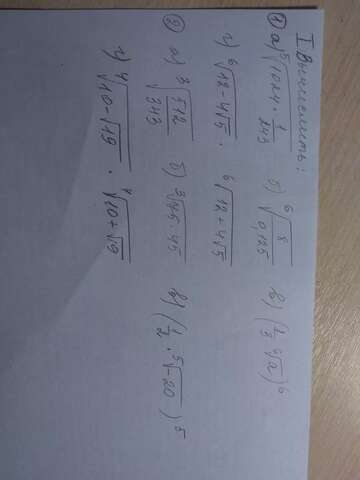 I Вычислить:
① а) ⁵√(1024 · 1/243) б) ⁶√(8/0,125) в) (1/3 ⁶√a)⁶
г) ⁶√(12-4√5) · ⁶√(12+4√5)
② а) ³√(512/343) б) ³√(75·45) в) (1/2 · ⁵√(-20))⁵
г) ⁴√(10-√19) · ⁴√(10+√19)